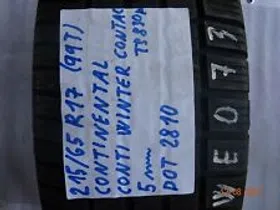 215/65 R17 (99T)
CONTINENTAL
CONTI WINTER CONTAC
TS 830P
5 mm
DOT 2810
WE073